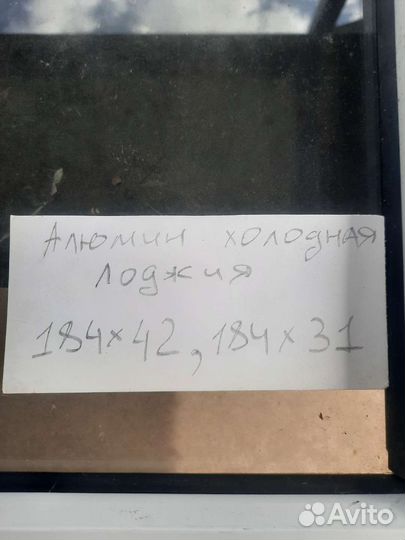 Алюмин холодная
лоджия
184×42, 184×31
Avito